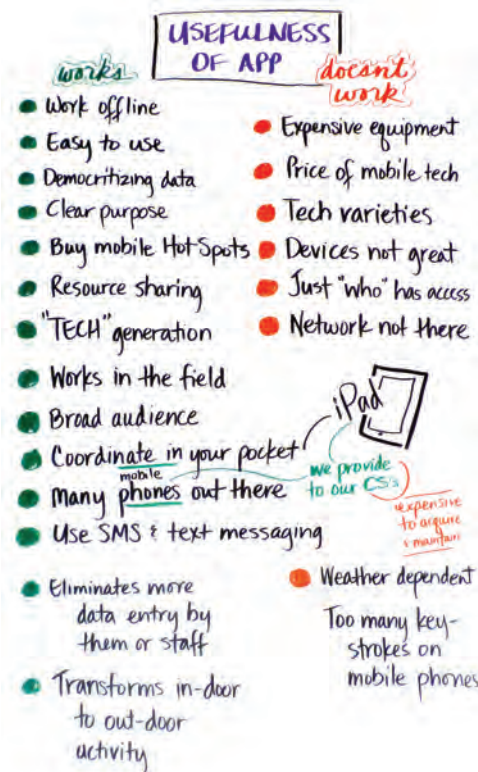 USEFULNESS
OF APP
works
Work offline
Easy to use
Democritizing data
Clear purpose
Buy mobile HotSpots
Resource sharing
"TECH" generation
Works in the field
Broad audience
Coordinate in your pocket
mobile
Many phones out there
Use SMS & text messaging
Eliminates more
data entry by
them or staff
Transforms in-door
to out-door
activity
doesnt
work
Expensive equipment
Price of mobile tech
Tech varieties
Devices not great
Just "who" has access
Network not there
iPad
we provide
to our CS's
expensive
to acquire
& maintain
Weather dependent
Too many key-
strokes on
mobile phones